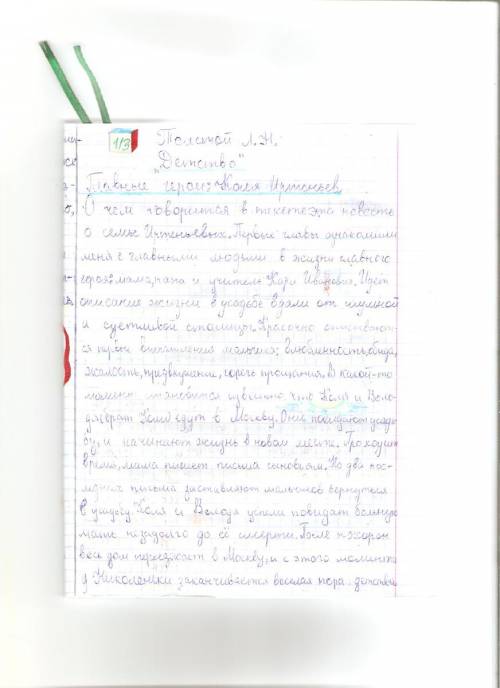 1/3
Толстой Л.Н.
"Детство"
Главные герои: Коля Иртеньев
О чём говорится в тексте: эта повесть
о семье Иртеньевых. Первые главы ознакомили
меня с главными людьми в жизни главного
героя: мама, папа и учитель Карл Иванович. Идёт
описание жизни в усадьбе вдали от шумной
и суетливой столицы. Красочно описывают-
ся первые впечатления мальчика: влюблённость, обида,
жалость, предвкушение, горечь прощания. В какой-то
момент становится известно, что Коля и Воло-
дя (брат Коли) едут в Москву. Они покидают усадь
бу, и начинают жизнь в новом месте. Проходит
время, мама пишет письма сыновьям. Но два пос-
ледних письма заставляют мальчиков вернуться
в усадьбу. Коля и Володя успели повидать больную
мать незадолго до её смерти. После похорон
весь дом переезжает в Москву, и с этого момента
у Николеньки заканчивается весёлая пора - детство